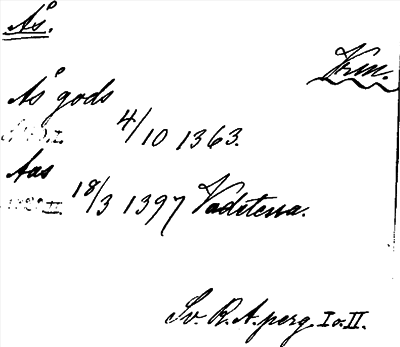 Ås.
Vrm.
Ås gods
4/10 1363.
Aas
18/3 1397 Vadstena.
Sv. R. A. perg. I o. II.